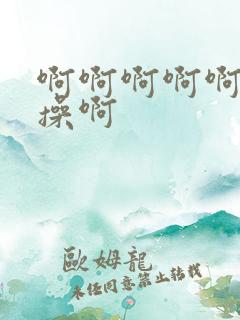 啊啊啊啊啊
操啊
歐姆龍
未经同意禁止转载